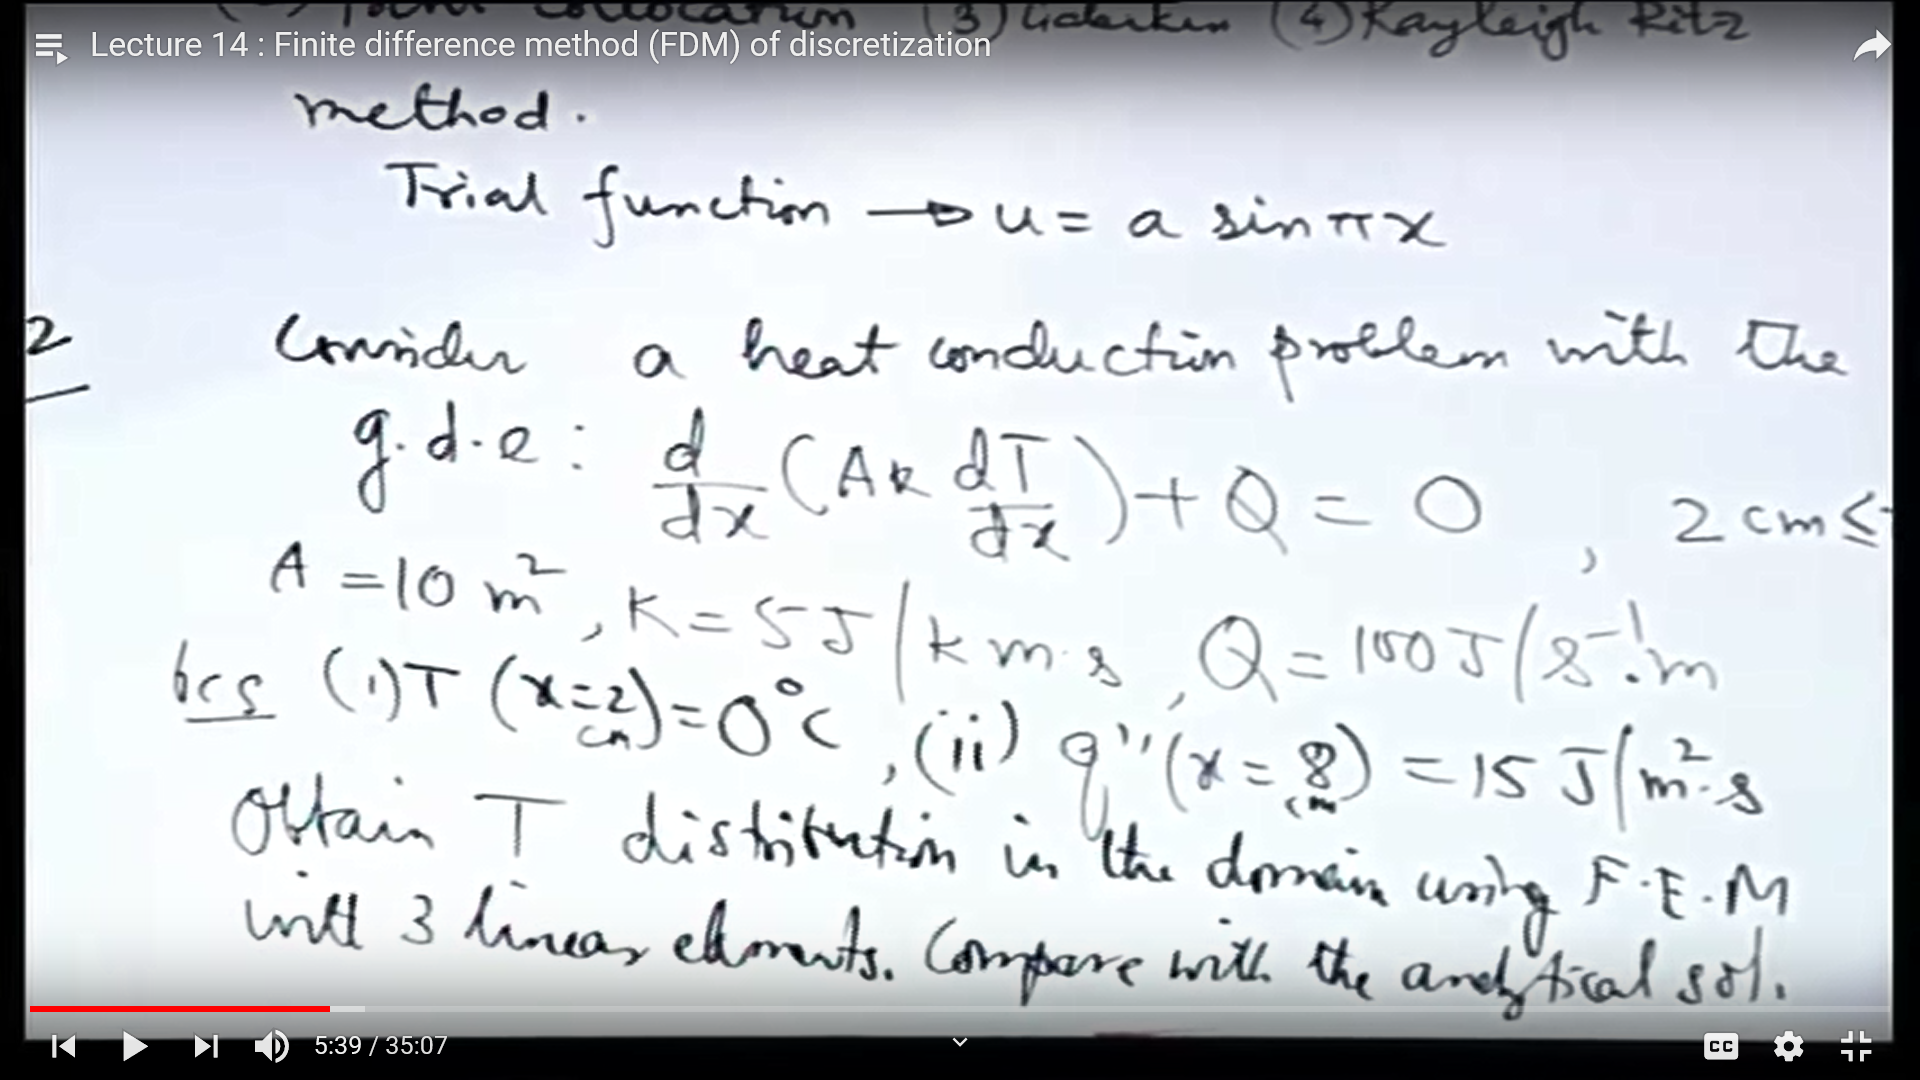 (3) Galerkin (4) Rayleigh Ritz
Lecture 14 : Finite difference method (FDM) of discretization
method.
Trial function → u = a sin πx
2 Consider a heat conduction problem with the
g.d.e : d/dx (Ak dT/dx) + Q = 0 , 2 cm ≤
A = 10 m², K = 5 J/k m.s, Q = 100 J/s⁻¹.m
bcs (i) T (x=2 cm) = 0°C, (ii) q'' (x = 8 cm) = 15 J/m².s
Obtain T distribution in the domain using F.E.M
with 3 linear elements. Compare with the analytical sol.
5:39 / 35:07
CC